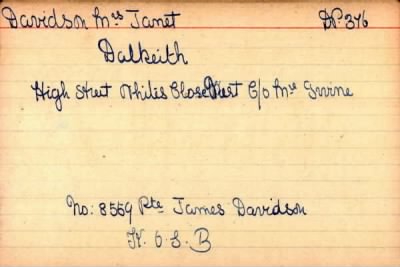 Davidson Mrs Janet DP. 376
Dalkeith
High Street Whites Close West C/o Mrs Irvine
No: 8559 Pte James Davidson
K. O. S. B